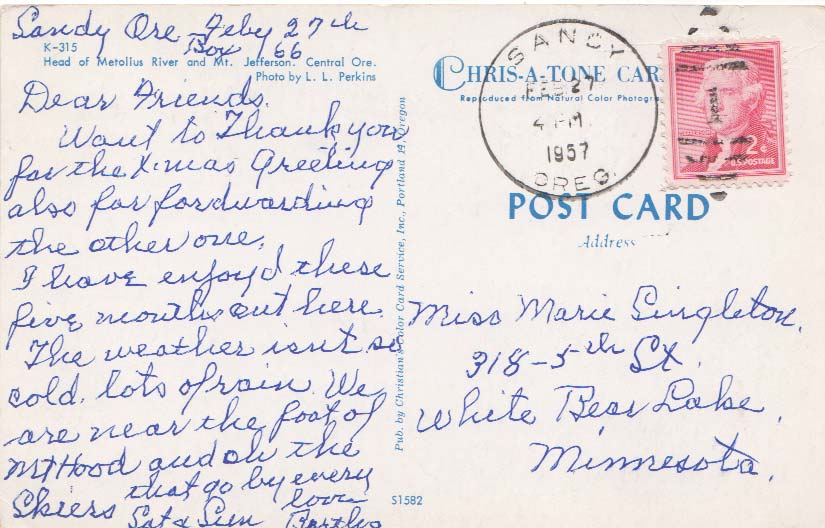 Sandy Ore Feby 27th
Box 66
K-315
Head of Metolius River and Mt. Jefferson. Central Ore.
Photo by L. L. Perkins
Dear Friends.
Want to Thank you
for the X-mas Greeting
also for forwarding
the other one.
I have enjoyd these
five months out here.
The weather isnt so
cold. lots of rain. We
are near the foot of
Mt Hood and oh the
Skiers that go by every
Sat & Sun love
Pub. by Christian's Color Card Service, Inc., Portland 14, Oregon
CHRIS-A-TONE CAR
Reproduced from Natural Color Photogra
SANDY
FEB 27
4 PM
1957
OREG.
2¢
U.S. POSTAGE
POST CARD
Address
Miss Marie Singleton.
318-5th St.
White Bear Lake,
Minnesota.
S1582